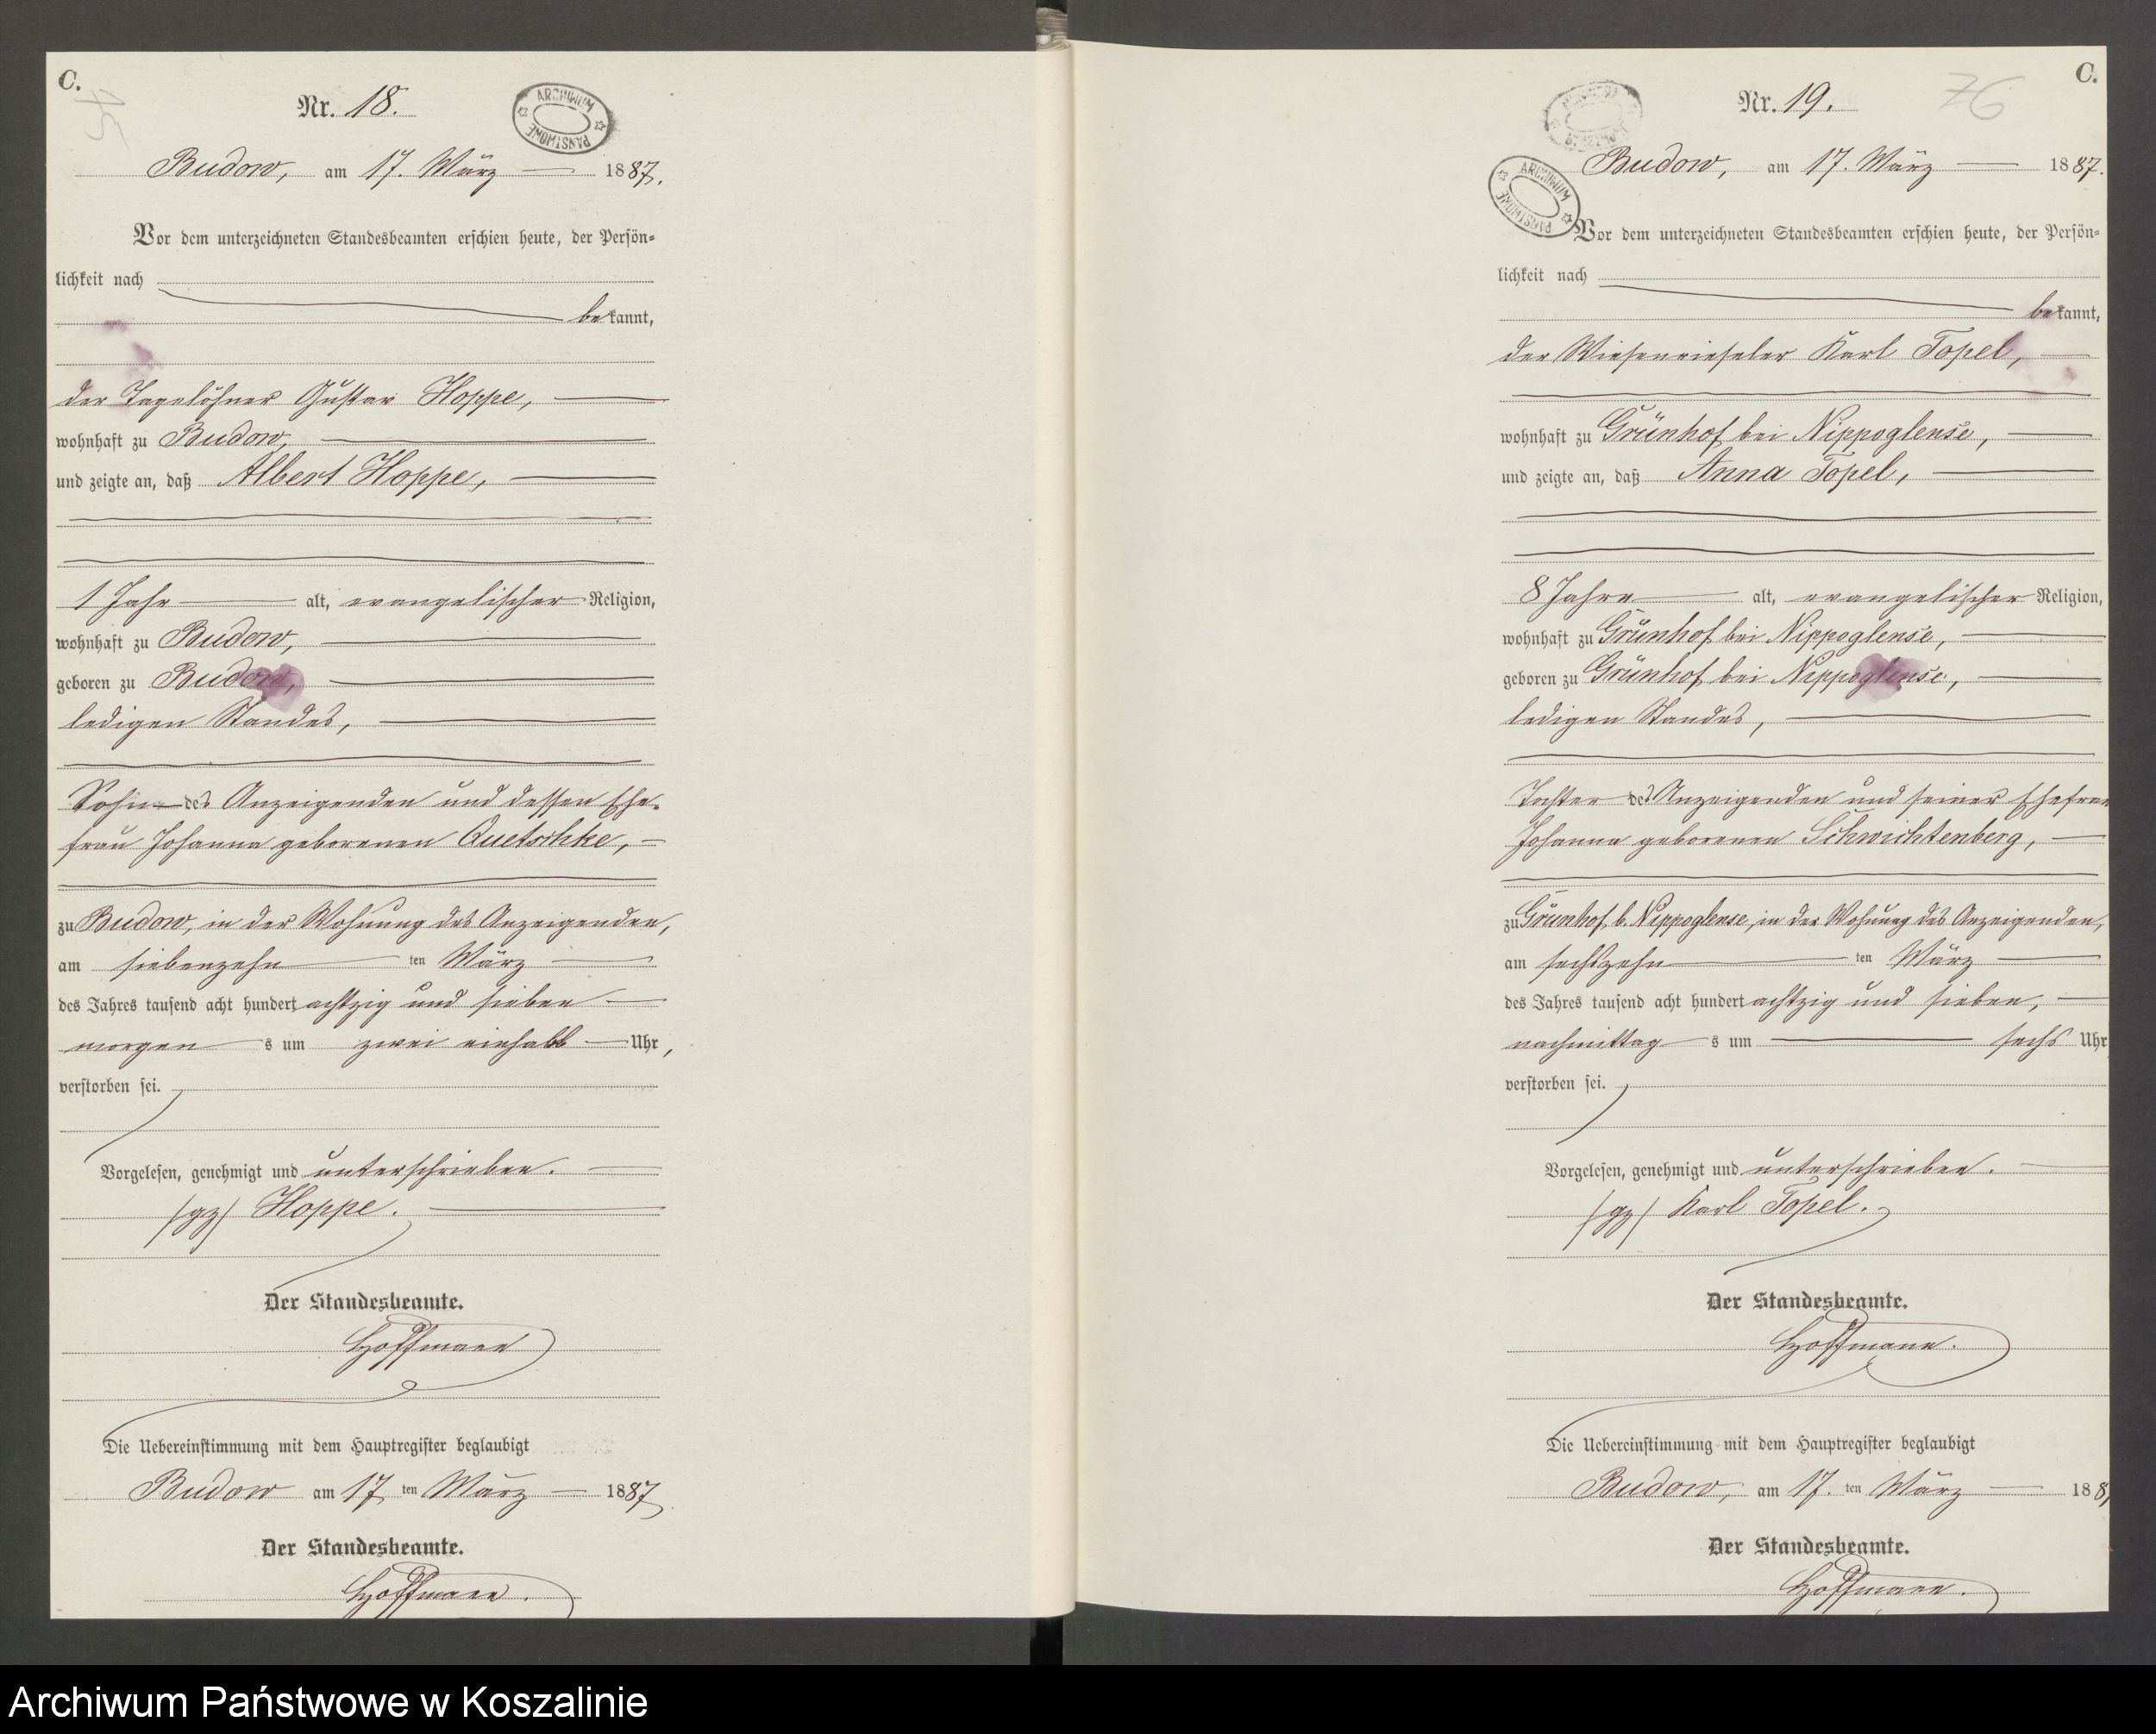 C.
75
Nr. 18.
ARCHIWUM PAŃSTWOWE
Budow, am 17. März 1887.
Vor dem unterzeichneten Standesbeamten erschien heute, der Persön-
lichkeit nach
bekannt,
der Tagelöhner Gustav Hoppe,
wohnhaft zu Budow,
und zeigte an, daß Albert Hoppe,
1 Jahr alt, evangelischer Religion,
wohnhaft zu Budow,
geboren zu Budow,
ledigen Standes,
Sohn des Anzeigenden und dessen Ehe-
frau Johanna geborenen Quetschke,
zu Budow, in der Wohnung des Anzeigenden,
am siebenzehn ten März
des Jahres tausend acht hundert achtzig und sieben
morgen s um zwei einhalb Uhr,
verstorben sei.
Vorgelesen, genehmigt und unterschrieben.
(gz) Hoppe.
Der Standesbeamte.
Hoffmann
Die Uebereinstimmung mit dem Hauptregister beglaubigt
Budow am 17 ten März 1887
Der Standesbeamte.
Hoffmann.
C.
76
Nr. 19.
Budow, am 17. März 1887.
ARCHIWUM PAŃSTWOWE
Vor dem unterzeichneten Standesbeamten erschien heute, der Persön-
lichkeit nach
bekannt,
der Wiesenrieseler Karl Topel,
wohnhaft zu Grünhof bei Nippoglense,
und zeigte an, daß Anna Topel,
8 Jahre alt, evangelischer Religion,
wohnhaft zu Grünhof bei Nippoglense,
geboren zu Grünhof bei Nippoglense,
ledigen Standes,
Tochter des Anzeigenden und seiner Ehefrau
Johanna geborenen Schwichtenberg,
zu Grünhof b. Nippoglense, in der Wohnung des Anzeigenden,
am sechszehn ten März
des Jahres tausend acht hundert achtzig und sieben,
nachmittag s um sechs Uhr
verstorben sei.
Vorgelesen, genehmigt und unterschrieben.
(gz) Karl Topel.
Der Standesbeamte.
Hoffmann.
Die Uebereinstimmung mit dem Hauptregister beglaubigt
Budow, am 17. ten März 188
Der Standesbeamte.
Hoffmann.
Archiwum Państwowe w Koszalinie